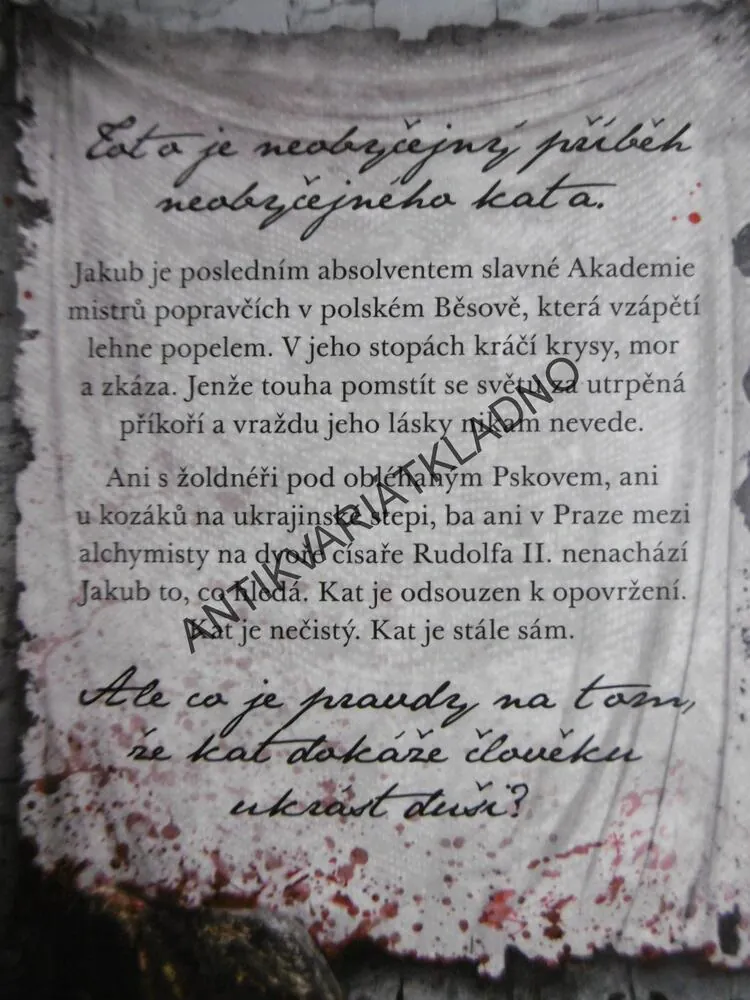 Toto je neobyčejný příběh
neobyčejného kata.
Jakub je posledním absolventem slavné Akademie
mistrů popravčích v polském Běsově, která vzápětí
lehne popelem. V jeho stopách kráčí krysy, mor
a zkáza. Jenže touha pomstít se světu za utrpěná
příkoří a vraždu jeho lásky nikam nevede.
Ani s žoldnéři pod obléhaným Pskovem, ani
u kozáků na ukrajinské stepi, ba ani v Praze mezi
alchymisty na dvoře císaře Rudolfa II. nenachází
Jakub to, co hledá. Kat je odsouzen k opovržení.
Kat je nečistý. Kat je stále sám.
Ale co je pravdy na tom,
že kat dokáže člověku
ukrást duši?
ANTIKVARIATKLADNO